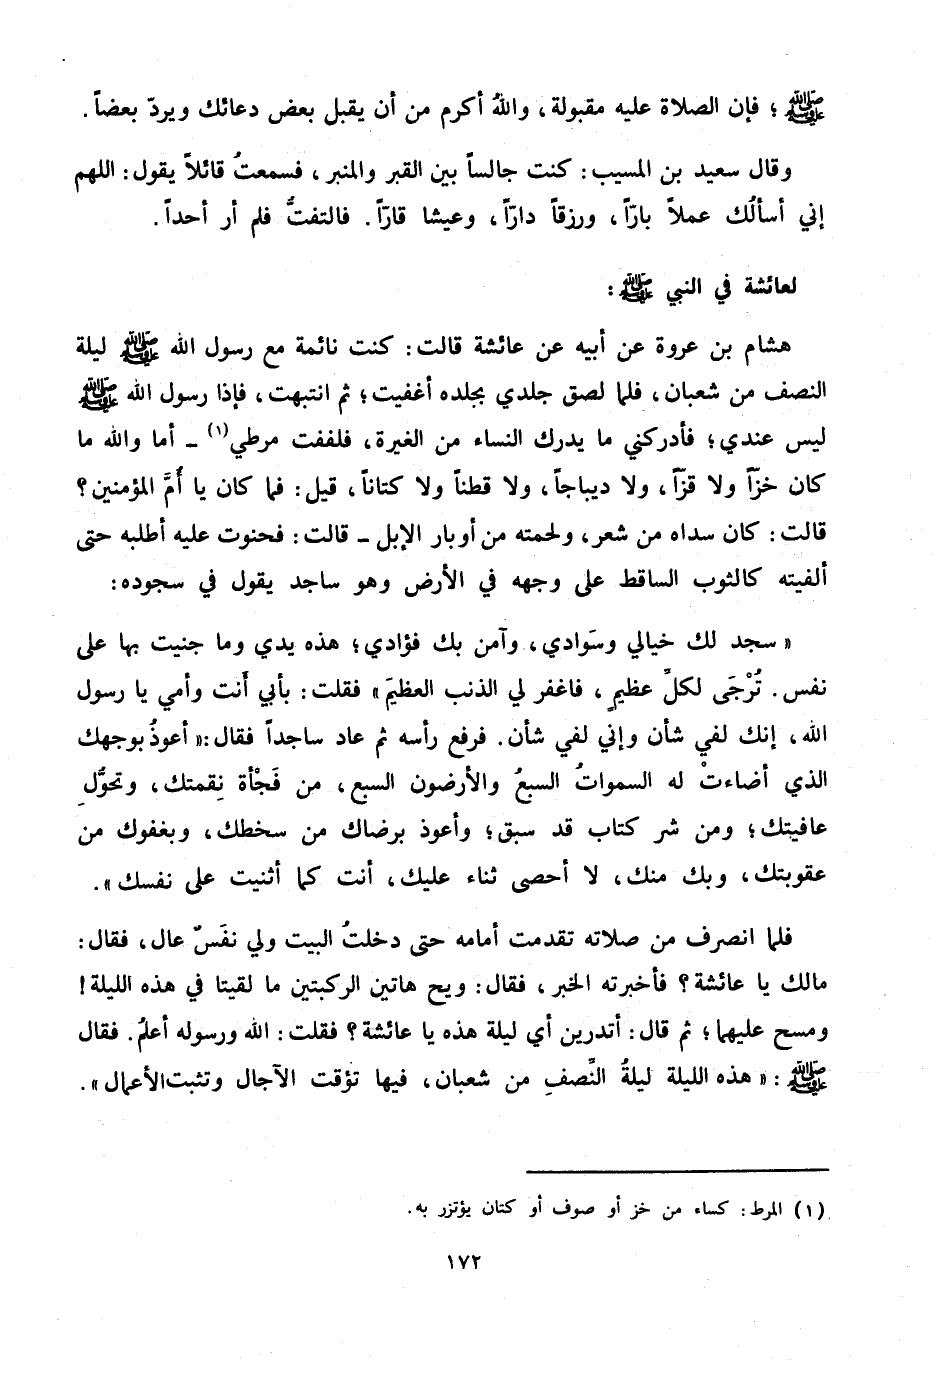 ﷺ ؛ فإن الصلاة عليه مقبولة، واللهُ أكرم من أن يقبل بعض دعائك ويردّ بعضاً.
وقال سعيد بن المسيب: كنت جالساً بين القبر والمنبر، فسمعتُ قائلاً يقول: اللهم
إني أسألُك عملاً بارّاً، ورزقاً دارّاً، وعيشا قارّاً. فالتفتُّ فلم أر أحداً.
لعائشة في النبي ﷺ:
هشام بن عروة عن أبيه عن عائشة قالت: كنت نائمة مع رسول الله ﷺ ليلة
النصف من شعبان، فلما لصق جلدي بجلده أغفيت؛ ثم انتبهت، فإذا رسول الله ﷺ
ليس عندي؛ فأدركني ما يدرك النساء من الغيرة، فلففت مرطي(١) ـ أما والله ما
كان خزّاً ولا قزّاً، ولا ديباجاً، ولا قطناً ولا كتاناً، قيل: فما كان يا أُمَّ المؤمنين؟
قالت: كان سداه من شعر، ولحمته من أوبار الإبل ـ قالت: فحنوت عليه أطلبه حتى
ألفيته كالثوب الساقط على وجهه في الأرض وهو ساجد يقول في سجوده:
« سجد لك خيالي وسَوادي، وآمن بك فؤادي؛ هذه يدي وما جنيت بها على
نفس. تُرْجَى لكلِّ عظيمٍ، فاغفر لي الذنب العظيمَ» فقلت: بأبي أَنت وأمي يا رسول
الله، إنك لفي شأن وإني لفي شأن. فرفع رأسه ثم عاد ساجداً فقال:« أعوذُ بوجهك
الذي أضاءتْ له السمواتُ السبعُ والأرضون السبع، من فَجْأة نِقمتك، وتحوُّلِ
عافيتك؛ ومن شر كتاب قد سبق؛ وأعوذ برضاك من سخطك، وبغفوك من
عقوبتك، وبك منك، لا أحصى ثناء عليك، أنت كما أثنيت على نفسك».
فلما انصرف من صلاته تقدمت أمامه حتى دخلتُ البيت ولي نفَسٌ عال، فقال:
مالك يا عائشة؟ فأخبرته الخبر، فقال: ويح هاتين الركبتين ما لقيتا في هذه الليلة!
ومسح عليهما؛ ثم قال: أتدرين أي ليلة هذه يا عائشة؟ فقلت: الله ورسوله أعلمُ. فقال
ﷺ :« هذه الليلة ليلةُ النِّصفِ من شعبان، فيها تؤقت الآجال وتثبت الأعمال».
(١) المرط: كساء من خز أو صوف أو كتان يؤتزر به.
١٧٢